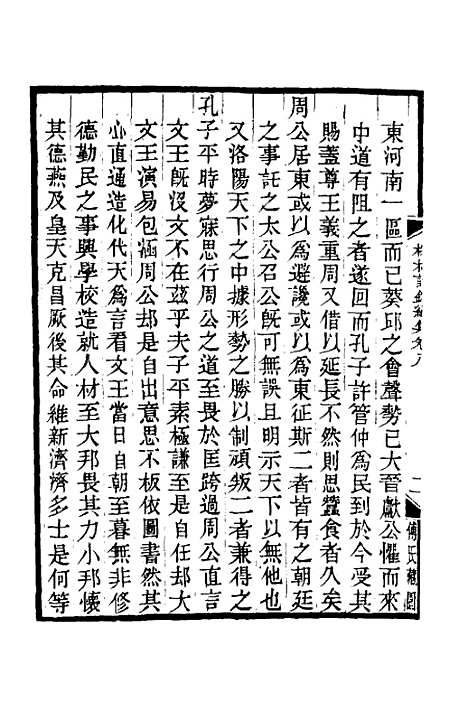 東河南一區而已葵邱之會聲勢已大晉獻公懼而來
中道有阻之者遂回而孔子許管仲爲民到於今受其
賜蓋尊王義重周又借以延長不然則思蠶食者久矣
周公居東或以爲避讒或以爲東征斯二者皆有之朝廷
之事託之太公召公旣可無誤且明示天下以無他也
又洛陽天下之中據形勢之勝以制頑叛二者兼得之
孔子平時夢寐思行周公之道至畏於匡跨過周公直言
文王旣沒文不在茲乎夫子平素極謙至是自任却大
文王演易包涵周公却是自出意思不板依圖書然其
心直通造化代天爲言看文王當日自朝至暮無非修
德勤民之事興學校造就人材至大邦畏其力小邦懷
其德燕及皇天克昌厥後其命維新濟濟多士是何等
卷八
二
傅氏藏園